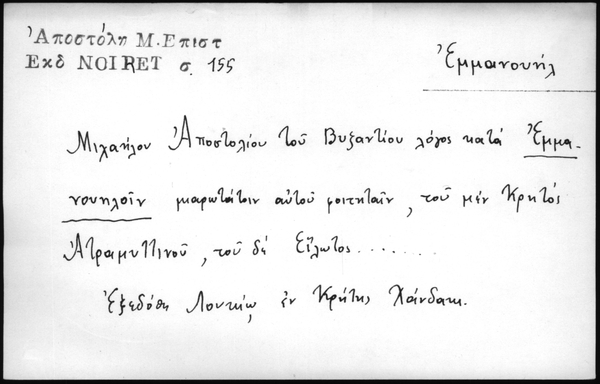 Ἀποστόλη Μ. Επιστ
Εκδ NOIRET σ. 155
Ἐμμανουήλ
Μιχαήλου Ἀποστολίου τοῦ Βυζαντίου λόγος κατά Ἐμμα-
νουηλοῖν μιαρωτάτοιν αὐτοῦ φοιτηταῖν, τοῦ μέν Κρητός
Ἀτραμυττινοῦ, τοῦ δέ Εἵλωτος........
Ἐξεδόθη Λουκίῳ, ἐν Κρήτης Χάνδακι.